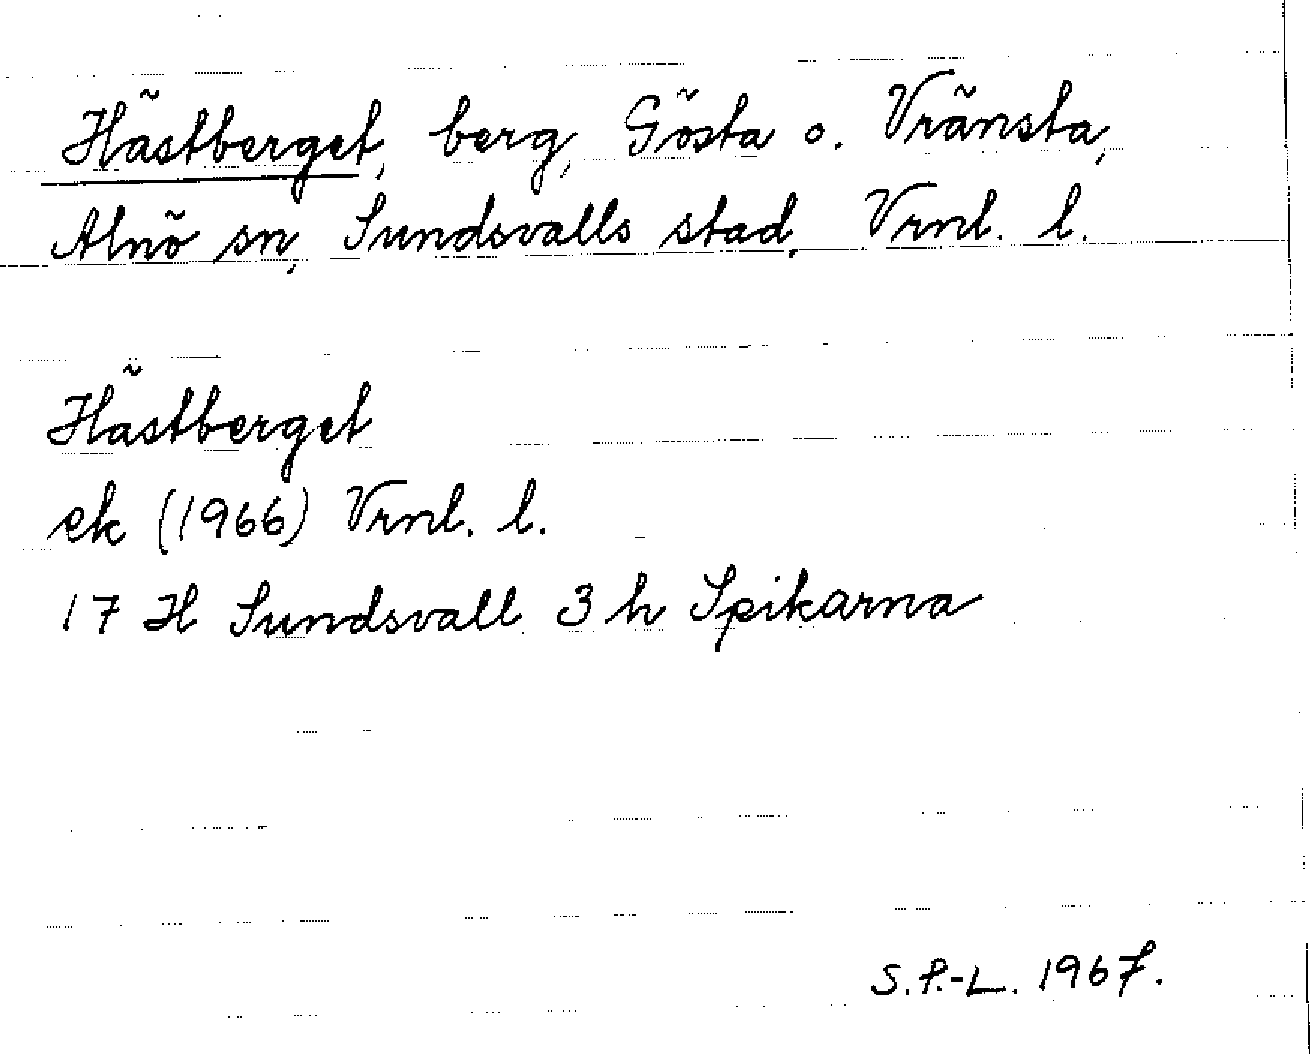 Hästberget, berg, Gösta o. Vränsta,
Alnö sn, Sundsvalls stad, Vrnl. l.
Hästberget
ek (1966) Vrnl. l.
17 H Sundsvall 3 h Spikarna
S.P.-L. 1967.